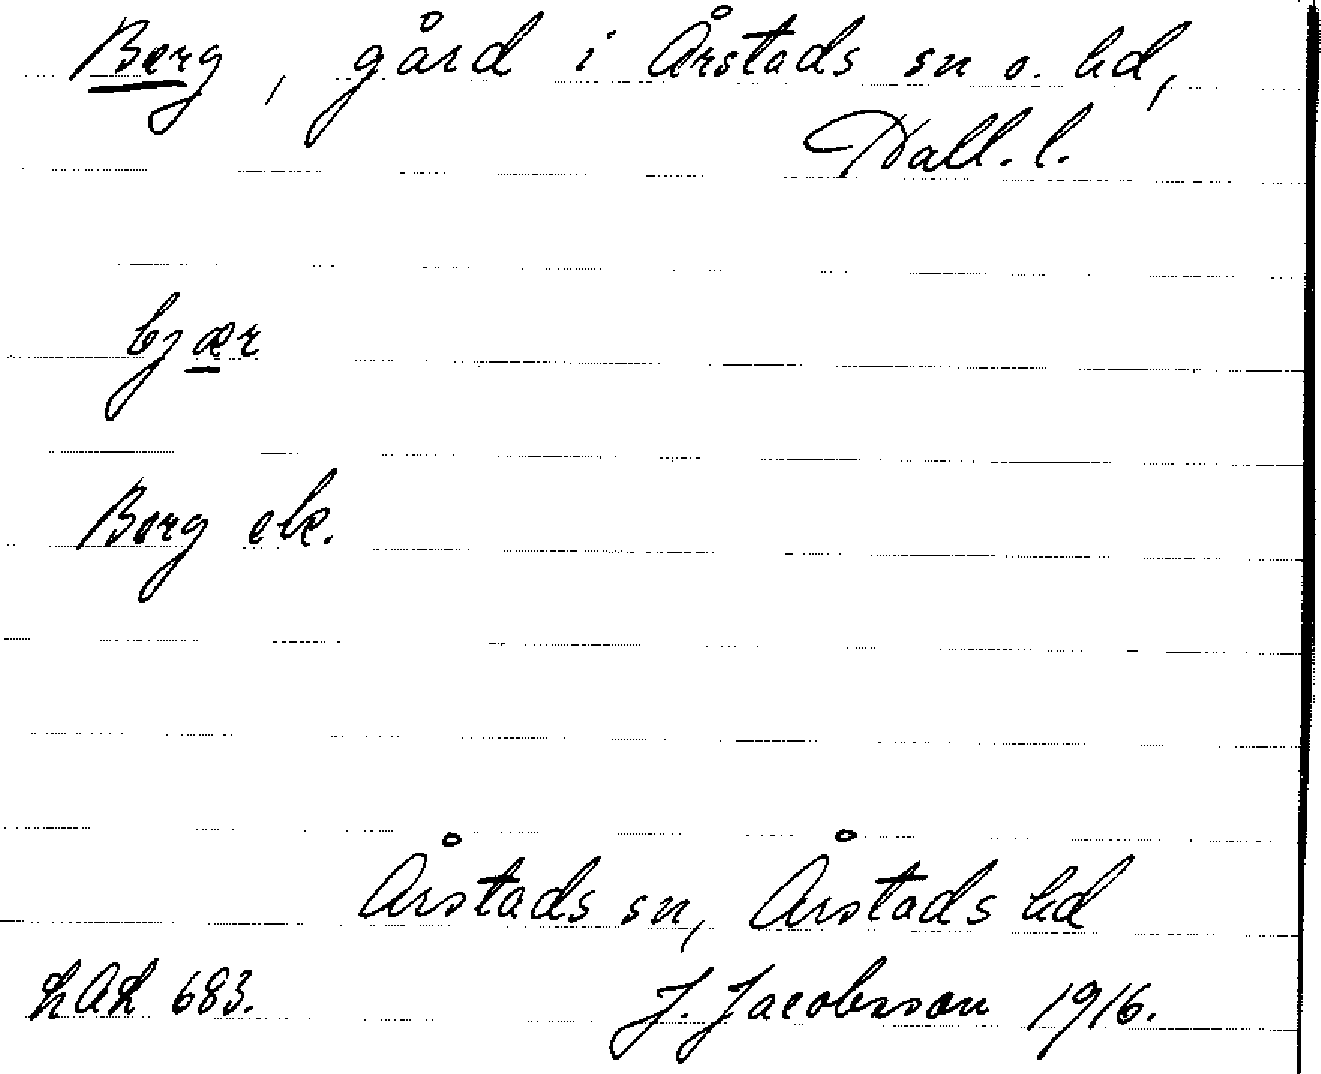 Berg, gård i Årstads sn o. hd,
Hall. l.
bjær
Berg ek.
Årstads sn, Årstads hd
LAL 683. J. Jacobsson 1916.